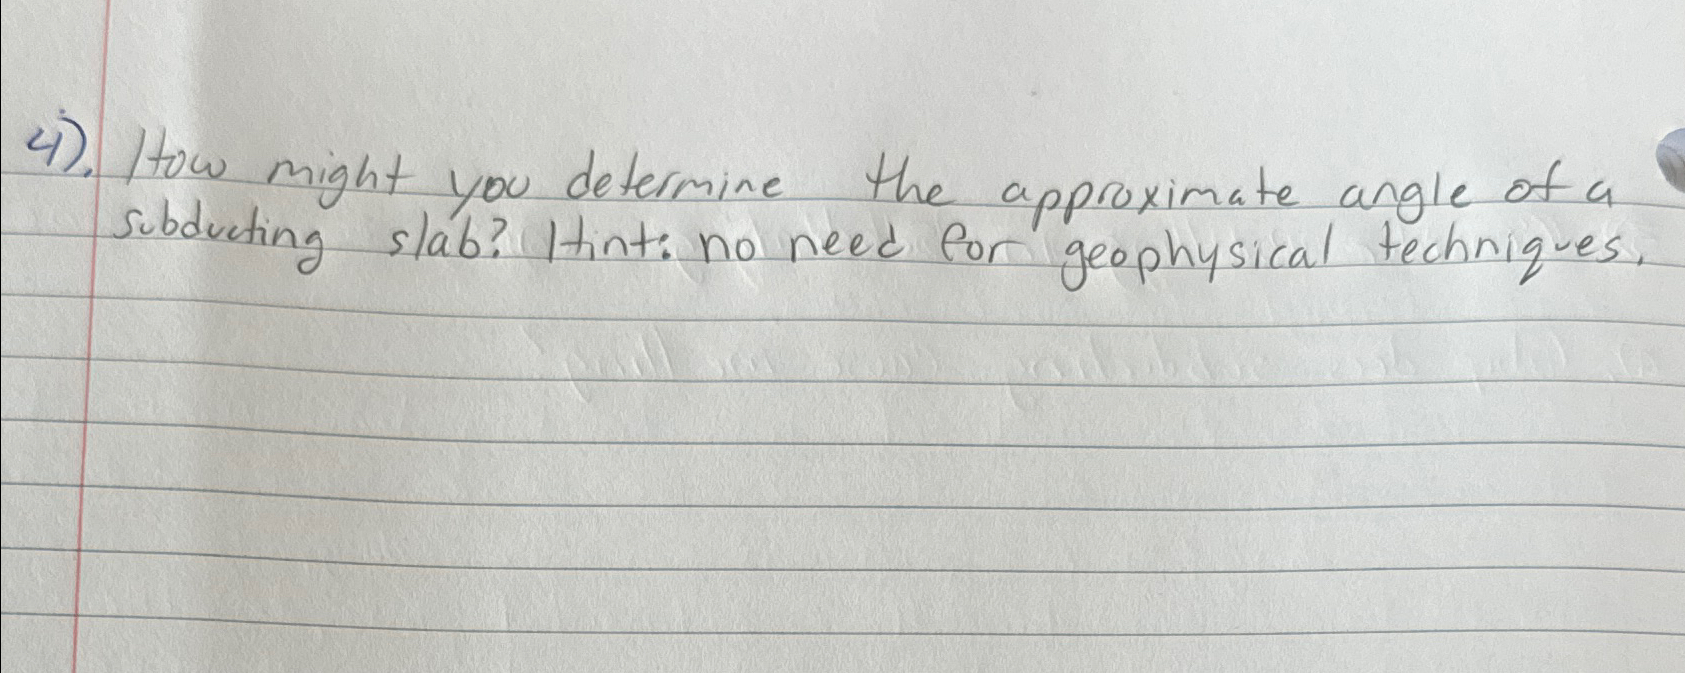 4). How might you determine the approximate angle of a
subducting slab? Hint: no need for geophysical techniques.